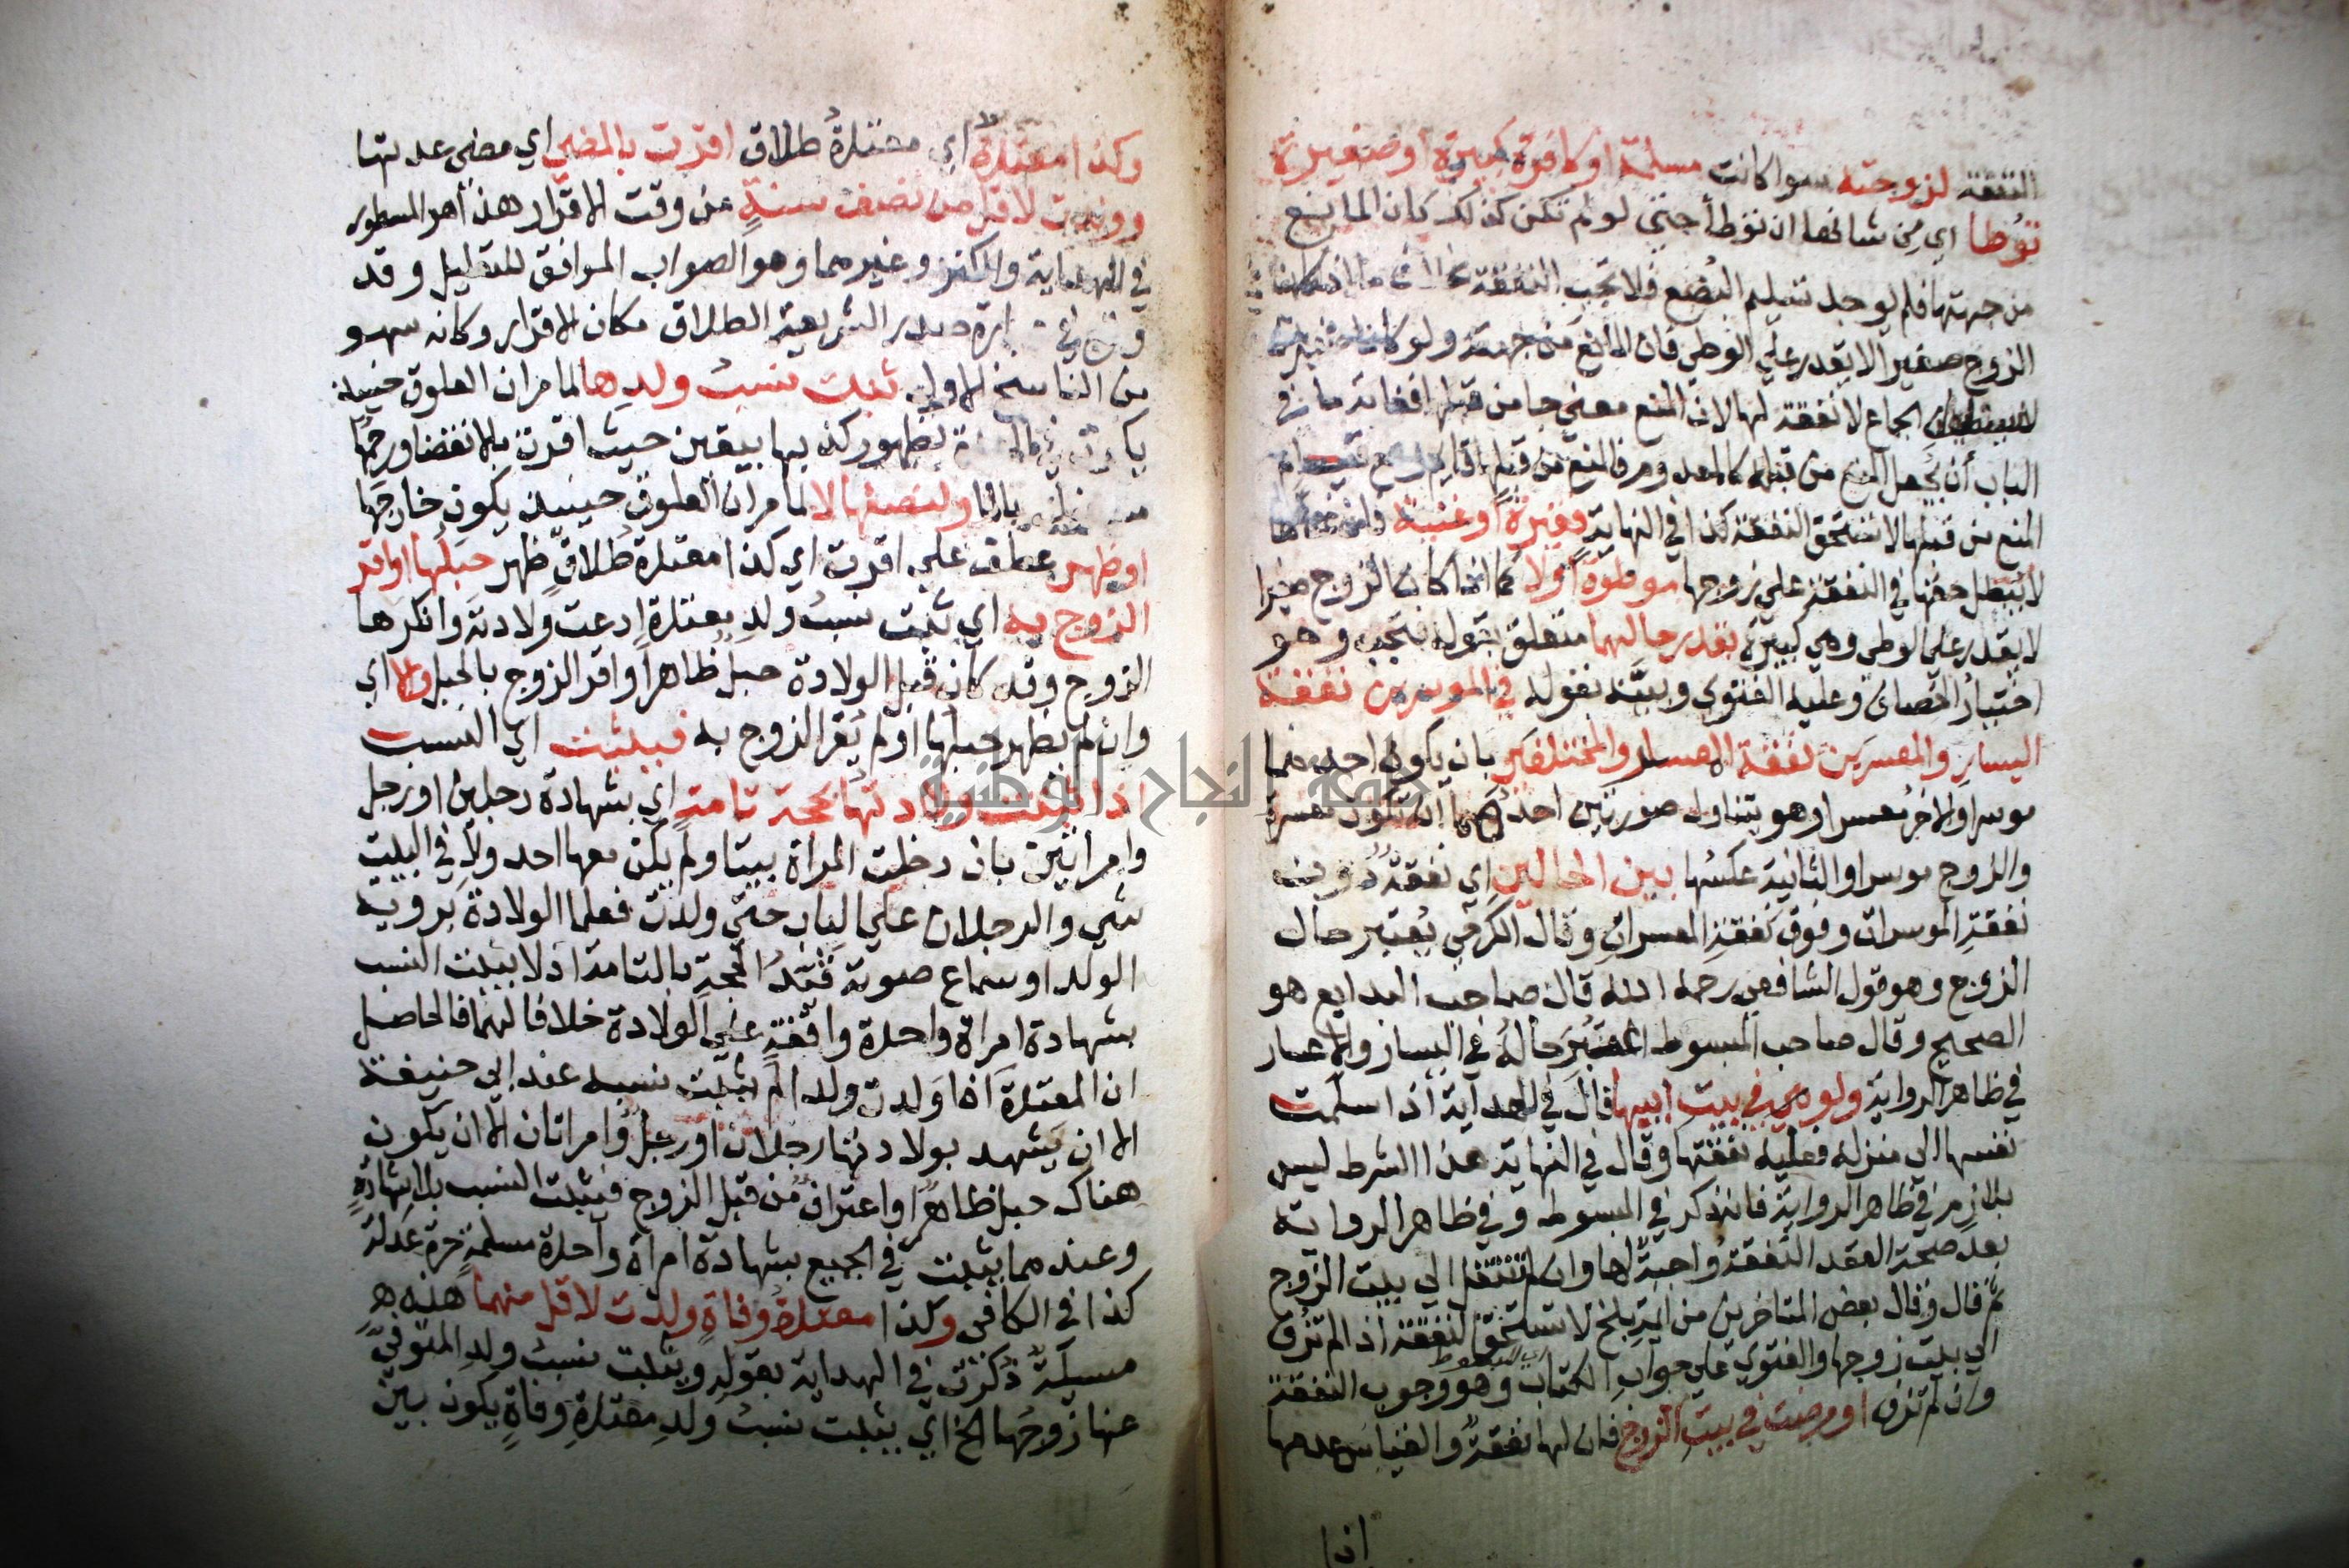 النفقة لزوجته سوا كانت مسلمة او كافرة كبيرة او صغيرة
توطا اي من شانها ان توطأ حتى لو لم تكن كذلك كان المانع
من جهتها فلم يوجد تسليم البضع فلا تجب النفقة
الزوج صغيرا لا يقدر علي الوطي فان المانع من جهته ولو كانا صغيرين
الجماع لا نفقة لها لان المنع معني جا من قبلها فغاية ما في
الباب أن يجعل المنع من قبله كالمعدوم فالمنع من قبلها قايم ومع قيام
المنع من قبلها لا تستحق النفقة كذا في النهاية فقيرة او غنية
لا يبطل حقها في النفقة علي زوجها موطوة أو لا كما اذا كان الزوج صغيرا
لا يقدر علي الوطي وهي كبيرة بقدر حالهما متعلق بقوله فتجب وهو
اختيار الخصاف وعليه الفتوي وبينه بقوله في الموسرين نفقة
اليسار والمعسرين نفقة العسار والمختلفين بان يكون احدهما
موسرا والاخر معسرا وهو يتناول صورتين احدهما ان تكون معسرة
والزوج موسرا والثانية عكسها بين الحالين اي نفقة دون
نفقة الموسرات وفوق نفقة المعسرات وقال الكرخي يعتبر حال
الزوج وهو قول الشافعي رحمه الله قال صاحب البدايع هو
الصحيح وقال صاحب المبسوط المعتبر حاله في اليسار والاعسار
في ظاهر الرواية ولو هي في بيت ابيها قال في الهداية اذا سلمت
نفسها الي منزله فعليه نفقتها وقال في النهاية هذا الشرط ليس
بلازم في ظاهر الرواية فانه ذكر في المبسوط وفي ظاهر الرواية
بعد صحة العقد النفقة واجبة لها وان لم تنتقل الي بيت الزوج
ثم قال وقال بعض المتاخرين من ايمة بلخ لا تستحق النفقة اذا لم تزف
الي بيت زوجها والفتوي علي جواب الكتاب وهو وجوب النفقة
وان لم تزف او مرضت في بيت الزوج فان لها نفقة والقياس عدمها
وكذا معتدة اي معتدة طلاق اقرت بالمضي اي مضي عدتها
وولدت لاقل من نصف سنة من وقت الاقرار هذا هو المسطور
في الهداية والكنز وغيرهما وهو الصواب الموافق للتعليل وقد
وقع في عبارة صدر الشريعة الطلاق مكان الاقرار وكانه سهو
من الناسخ الاول ثبت نسب ولدها لما مر ان العلوق حينيذ
بظهور كذبها بيقين حيث اقرت بالانقضا ورحمها
ولنصفها لا لما مر ان العلوق حينيذ يكون خارجها
او ظهر عطف علي اقرت اي كذا معتدة طلاق ظهر حبلها او اقر
الزوج به اي ثبت نسب ولد معتدة ادعت ولادته وانكرها
الزوج وقد كان قبل الولادة حبل ظاهر او اقر الزوج بالحبل والا اي
وان لم يظهر حبلها او لم يقر الزوج به فيثبت اي النسب
اذا ثبتت ولادتها بحجة تامة اي بشهادة رجلين او رجل
وامراتين بان دخلت المراة بيتا ولم يكن معها احد ولا في البيت
شي والرجلان علي الباب حتي ولدت فعلما الولادة برويه
الولد او سماع صوته قيد الحجة بالتامة اذ لا يثبت النسب
بشهادة امراة واحدة واقفة علي الولادة خلافا لهما فالحاصل
ان المعتدة اذا ولدت ولدا لم يثبت نسبه عند ابي حنيفة
الا ان يشهد بولادتها رجلان او رجل وامراتان الا ان يكون
هناك حبل ظاهرا او اعتراف من قبل الزوج فيثبت النسب بلا شهادة
وعندهما يثبت في الجميع بشهادة امراة واحدة مسلمة حرة عدلة
كذا في الكافي وكذا معتدة وفاة ولدت لاقل منهما هذه
مسيلة ذكرت في الهداية بقوله ويثبت نسب ولد المتوفي
عنها زوجها الخ اي يثبت نسب ولد معتدة وفاة يكون بين
جامعة النجاح الوطنية